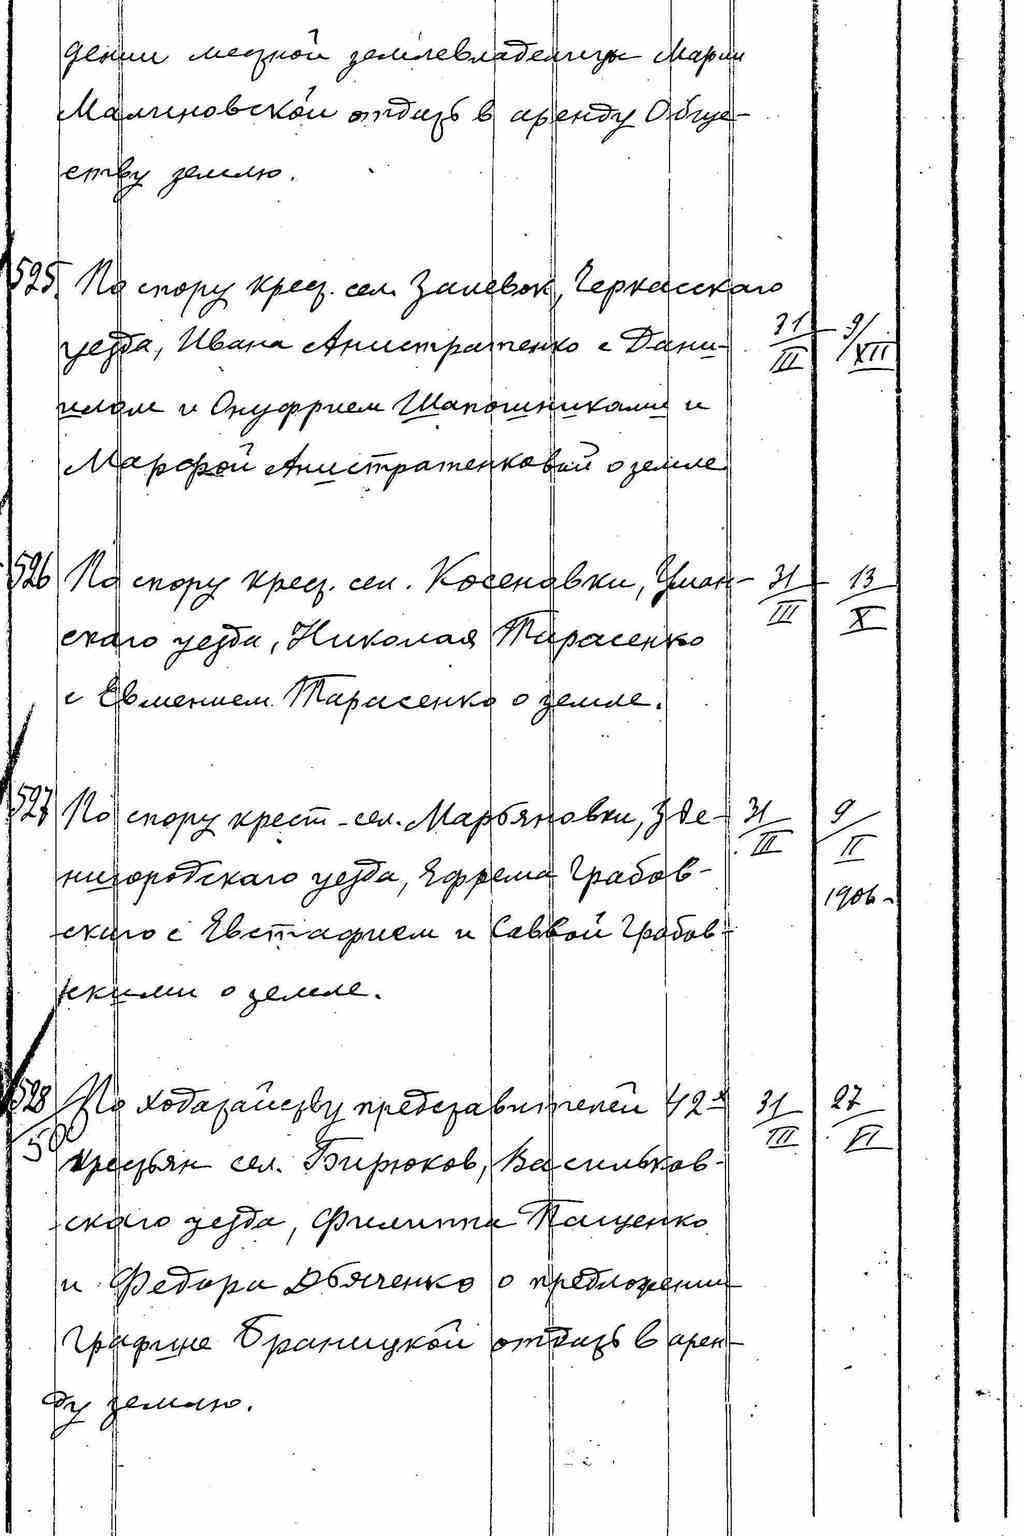 дении местной землевладелицы Марии
Малиновской отдать в аренду Обще-
ству землю.
525. По спору крест. сел. Залевок, Черкасскаго
уезда, Ивана Анистратенко с Дани-
31/III 9/XII
илом и Онуфрием Шапошниками и
Марфой Анистратенковой о земле
526 По спору крест. сел. Косеновки, Уман-
31/III 13/X
скаго уезда, Николая Тарасенко
с Евмением Тарасенко о земле.
527 По спору крест. сел. Марьяновки, Зве-
31/III 9/II 1906
нигородскаго уезда, Ефрема Грабов-
скаго с Евстафием и Саввой Грабов-
скими о земле.
528 По ходатайству представителей 42х
31/III 27/VI
50 крестьян сел. Бирюков, Васильков-
скаго уезда, Филиппа Пащенко
и Федора Дьяченко о предложении
графине Браницкой отдать в арен-
ду землю.